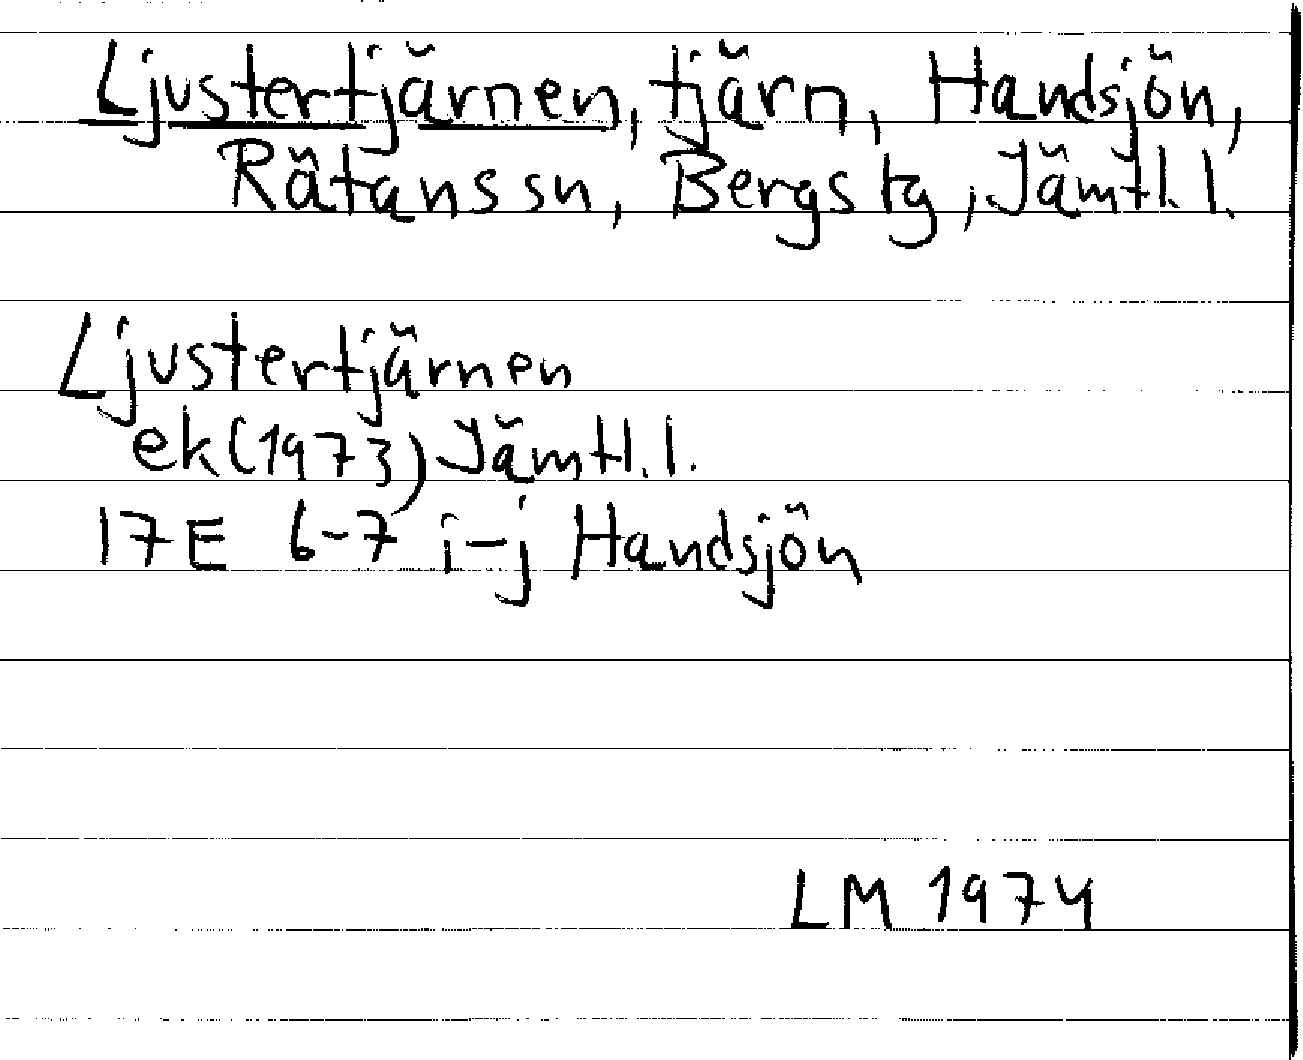 Ljustertjärnen, tjärn, Handsjön,
Rätans sn, Bergs tg, Jämtl. l.
Ljustertjärnen
ek (1973) Jämtl. l.
17E 6-7 i-j Handsjön
LM 1974